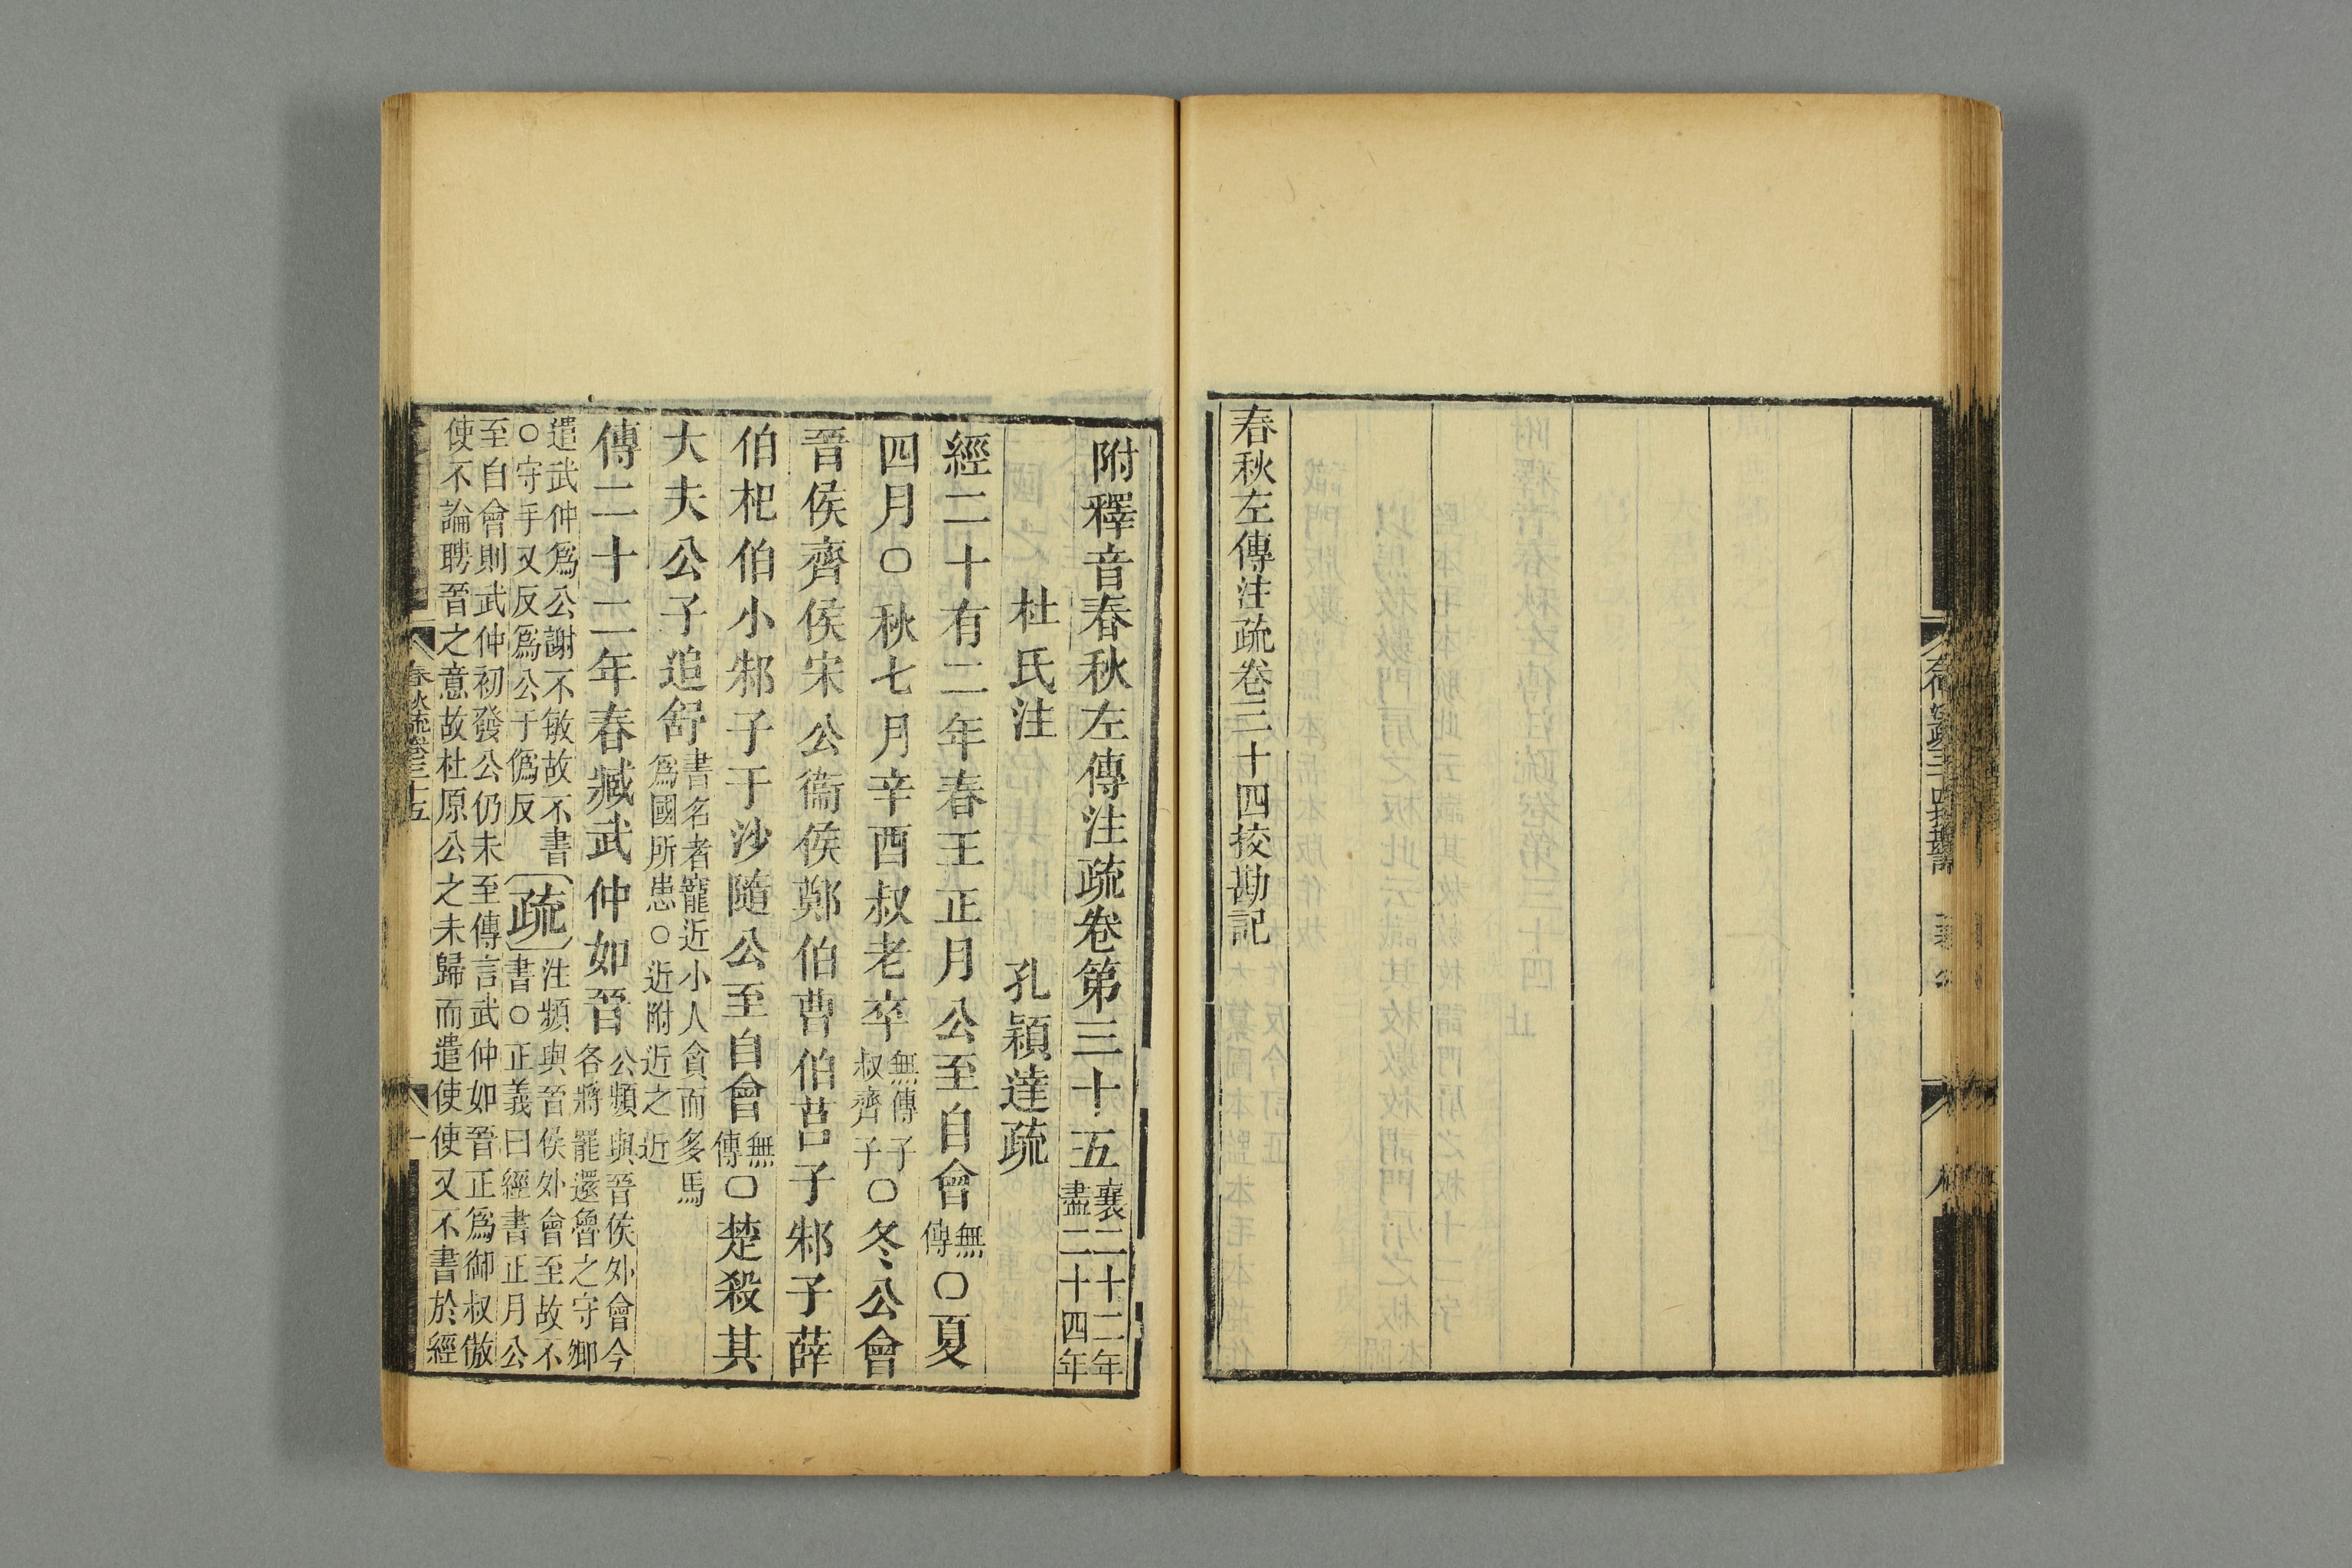 春秋左傳注疏卷三十四挍勘記
附釋音春秋左傳注疏卷第三十五
襄二十二年
盡二十四年
杜氏注 孔穎達疏
經二十有二年春王正月公至自會
無
傳
○夏
四月○秋七月辛酉叔老卒
無傳子
叔齊子
○冬公會
晉侯齊侯宋公衞侯鄭伯曹伯莒子邾子薛
伯杞伯小邾子于沙隨公至自會
無
傳
○楚殺其
大夫公子追舒
書名者寵近小人貪而多馬
爲國所患○近附近之近
傳二十二年春臧武仲如晉
公頻與晉侯外會今
各將罷還魯之守卿
遣武仲爲公謝不敏故不書
○守手又反爲公于僞反
疏
注頻與晉侯外會至故不
書○正義曰經書正月公
至自會則武仲初發公仍未至傳言武仲如晉正爲御叔傲
使不論聘晉之意故杜原公之未歸而遣使使又不書於經
春秋疏卷三十五
一